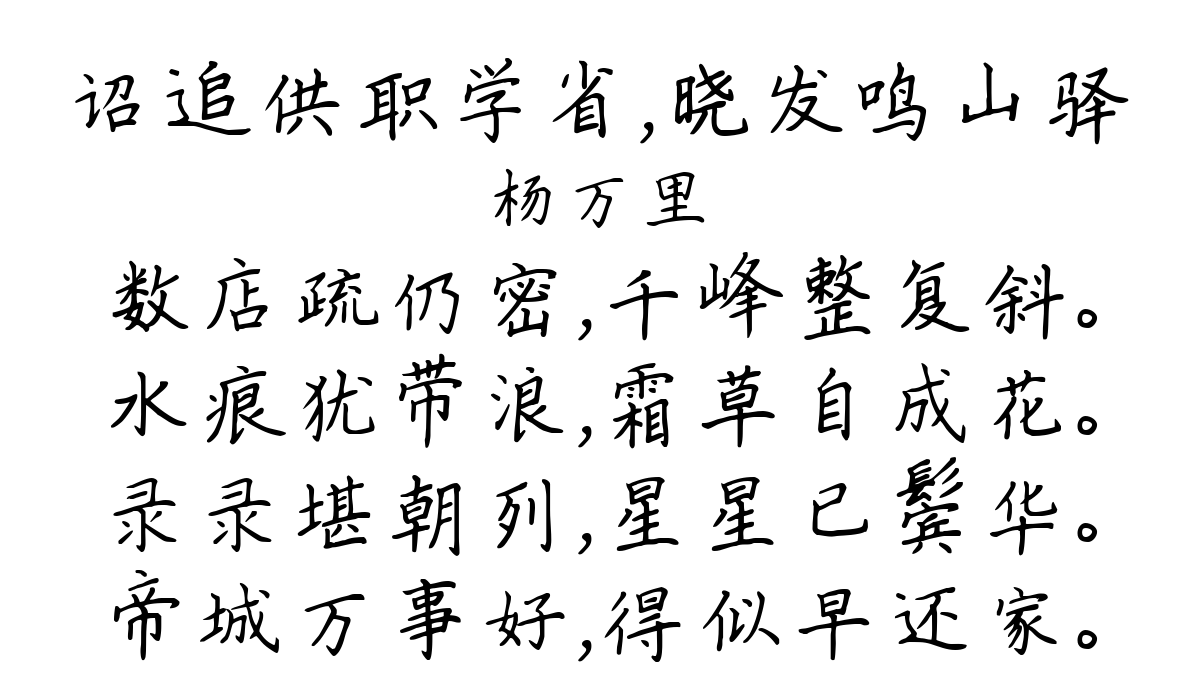 诏追供职学省,晓发鸣山驿
杨万里
数店疏仍密,千峰整复斜。
水痕犹带浪,霜草自成花。
录录堪朝列,星星已鬓华。
帝城万事好,得似早还家。